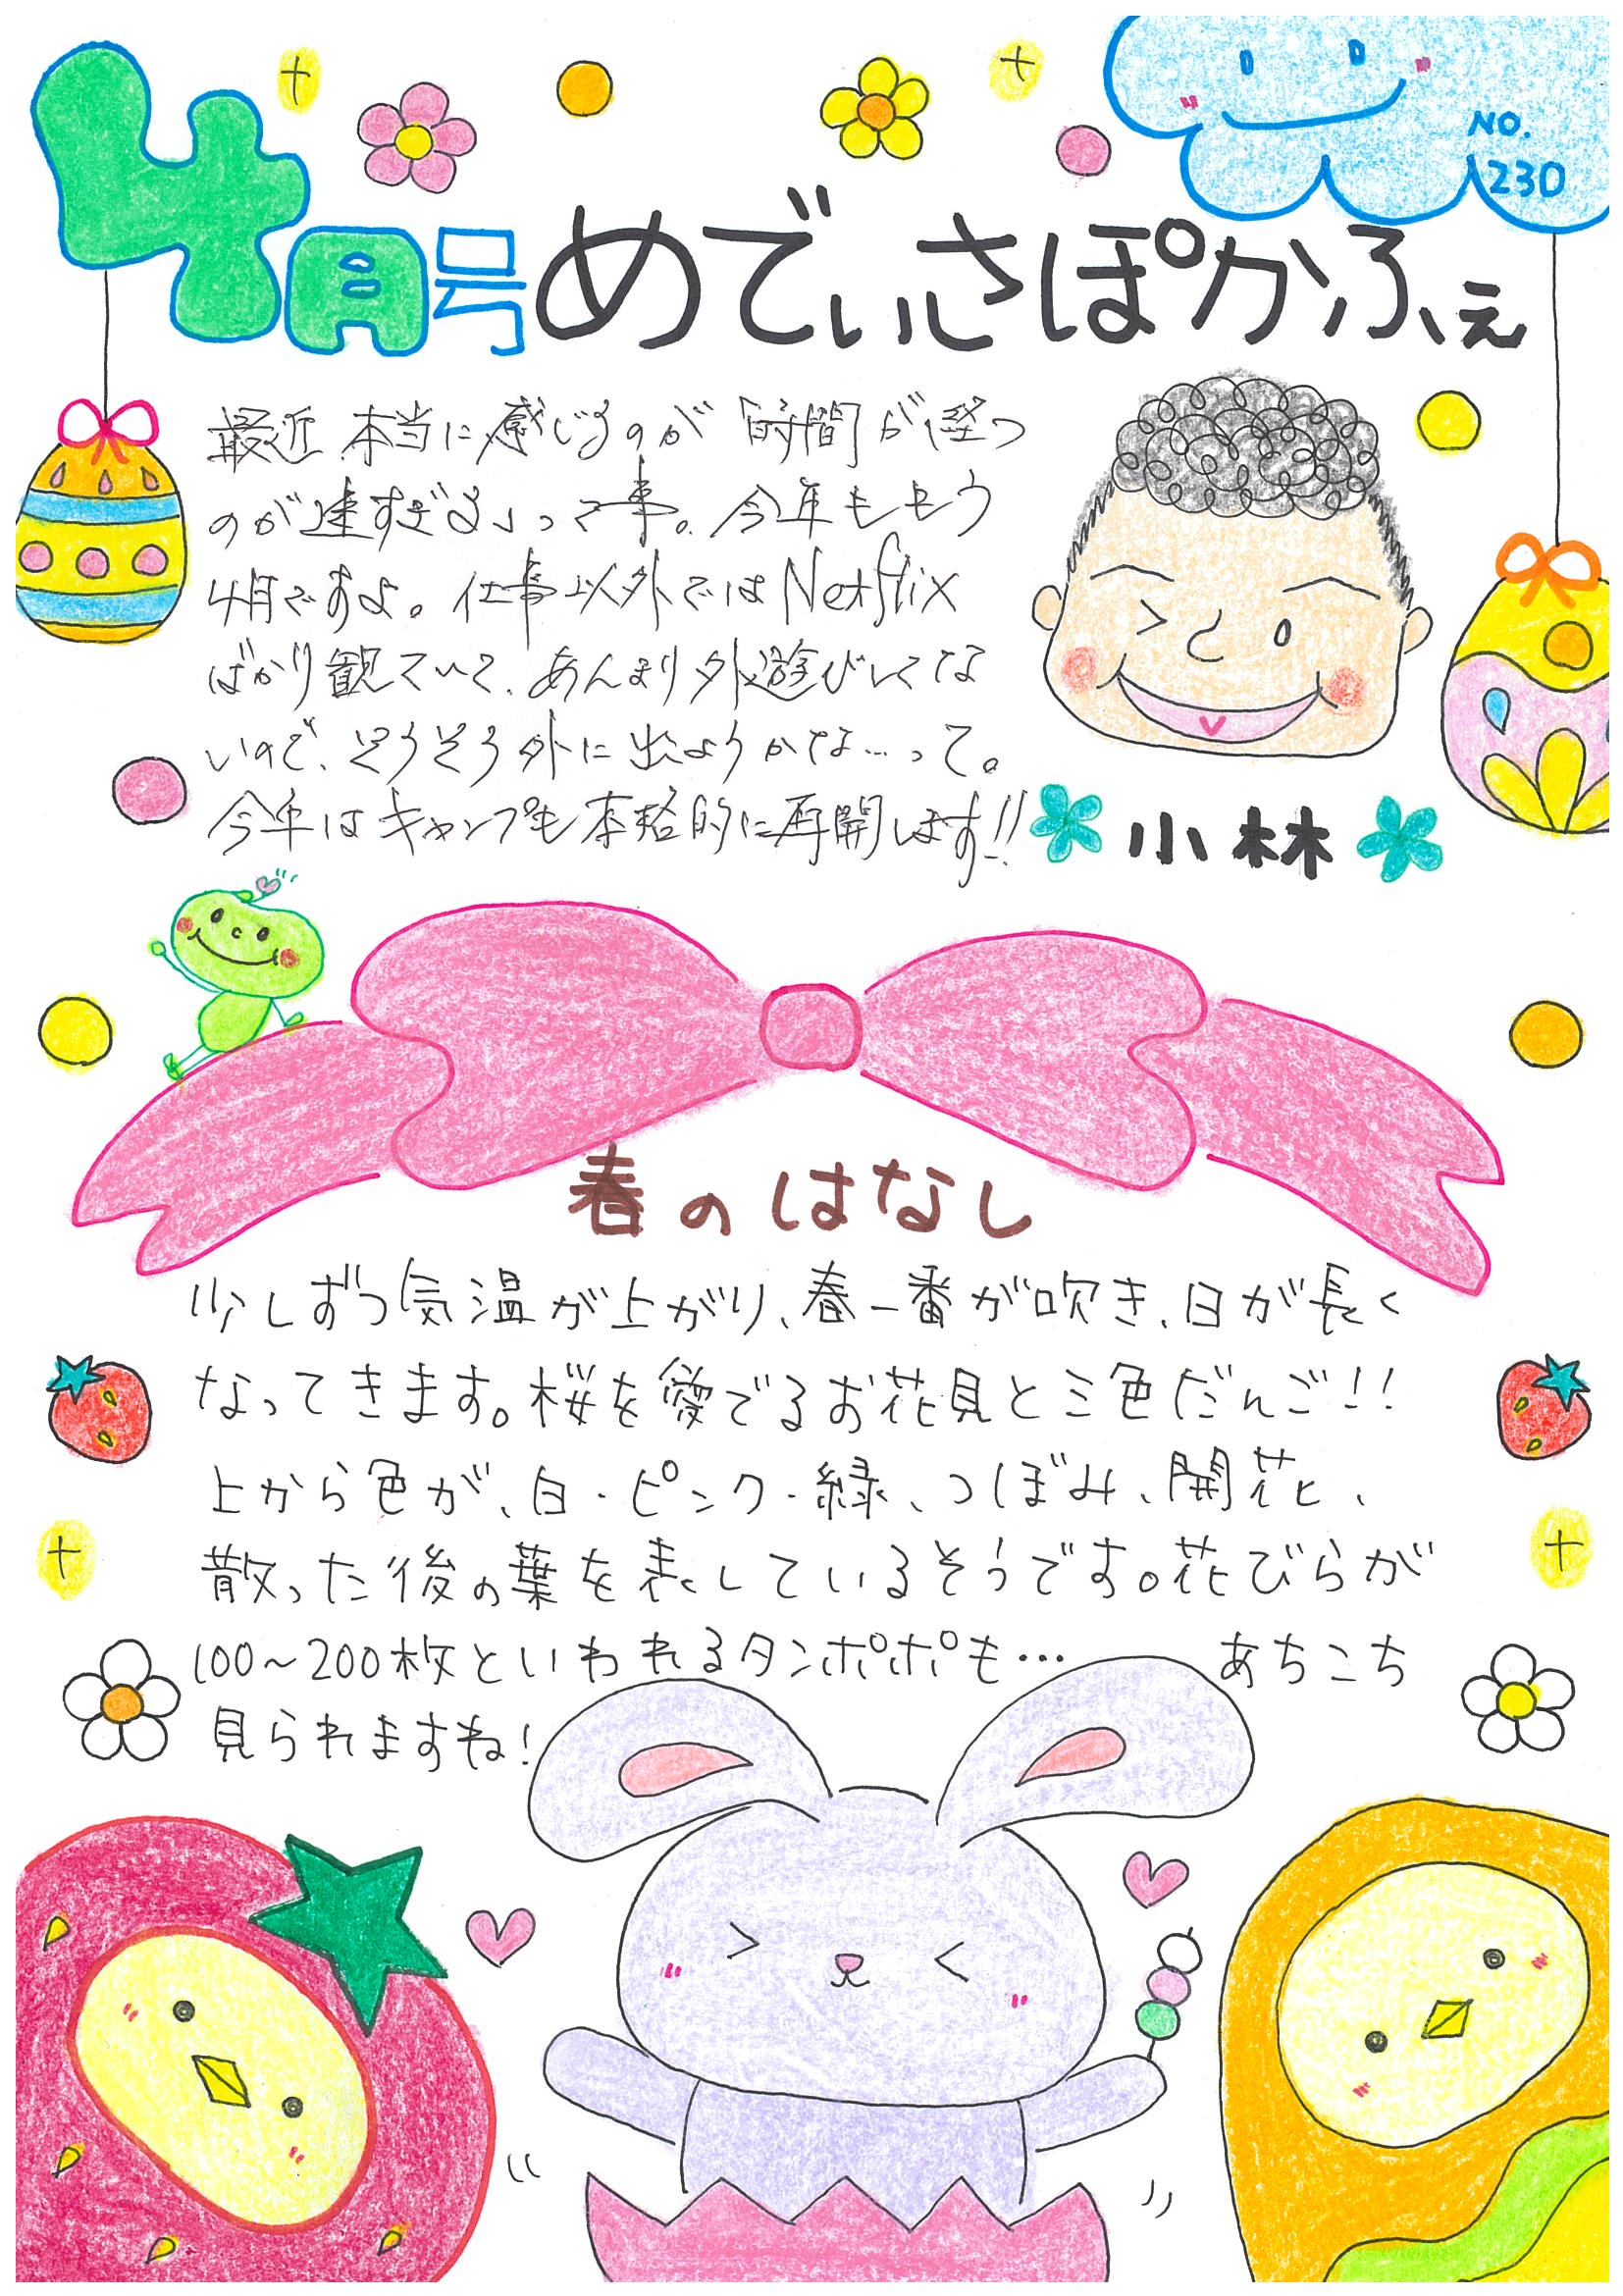 NO.
230
4月号 めでぃさぽかふぇ
最近、本当に感じるのが「時間が経つ
のが速すぎる」って事。今年ももう
4月ですよ。仕事以外ではNetflix
ばかり観ていて、あんまり外遊びしてな
いので、そろそろ外に出ようかな…って。
今年はキャンプも本格的に再開します!!
小林
春のはなし
少しずつ気温が上がり、春一番が吹き、日が長く
なってきます。桜を愛でるお花見と三色だんご!!
上から色が、白・ピンク・緑、つぼみ、開花、
散った後の葉を表しているそうです。花びらが
100~200枚といわれるタンポポも… あちこち
見られますね!